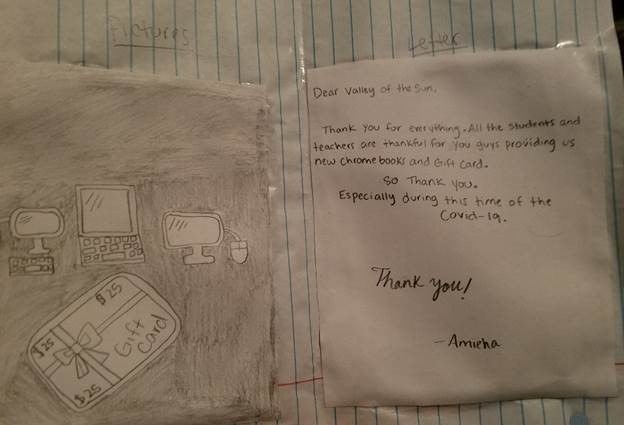 Pictures
$25
$25
Gift
Card
$25
Letter
Dear Valley of the Sun,
Thank you for everything. All the students and
teachers are thankful for you guys providing us
new Chromebooks and Gift Card.
So Thank you.
Especially during this time of the
Covid-19.
Thank you!
- Amieha